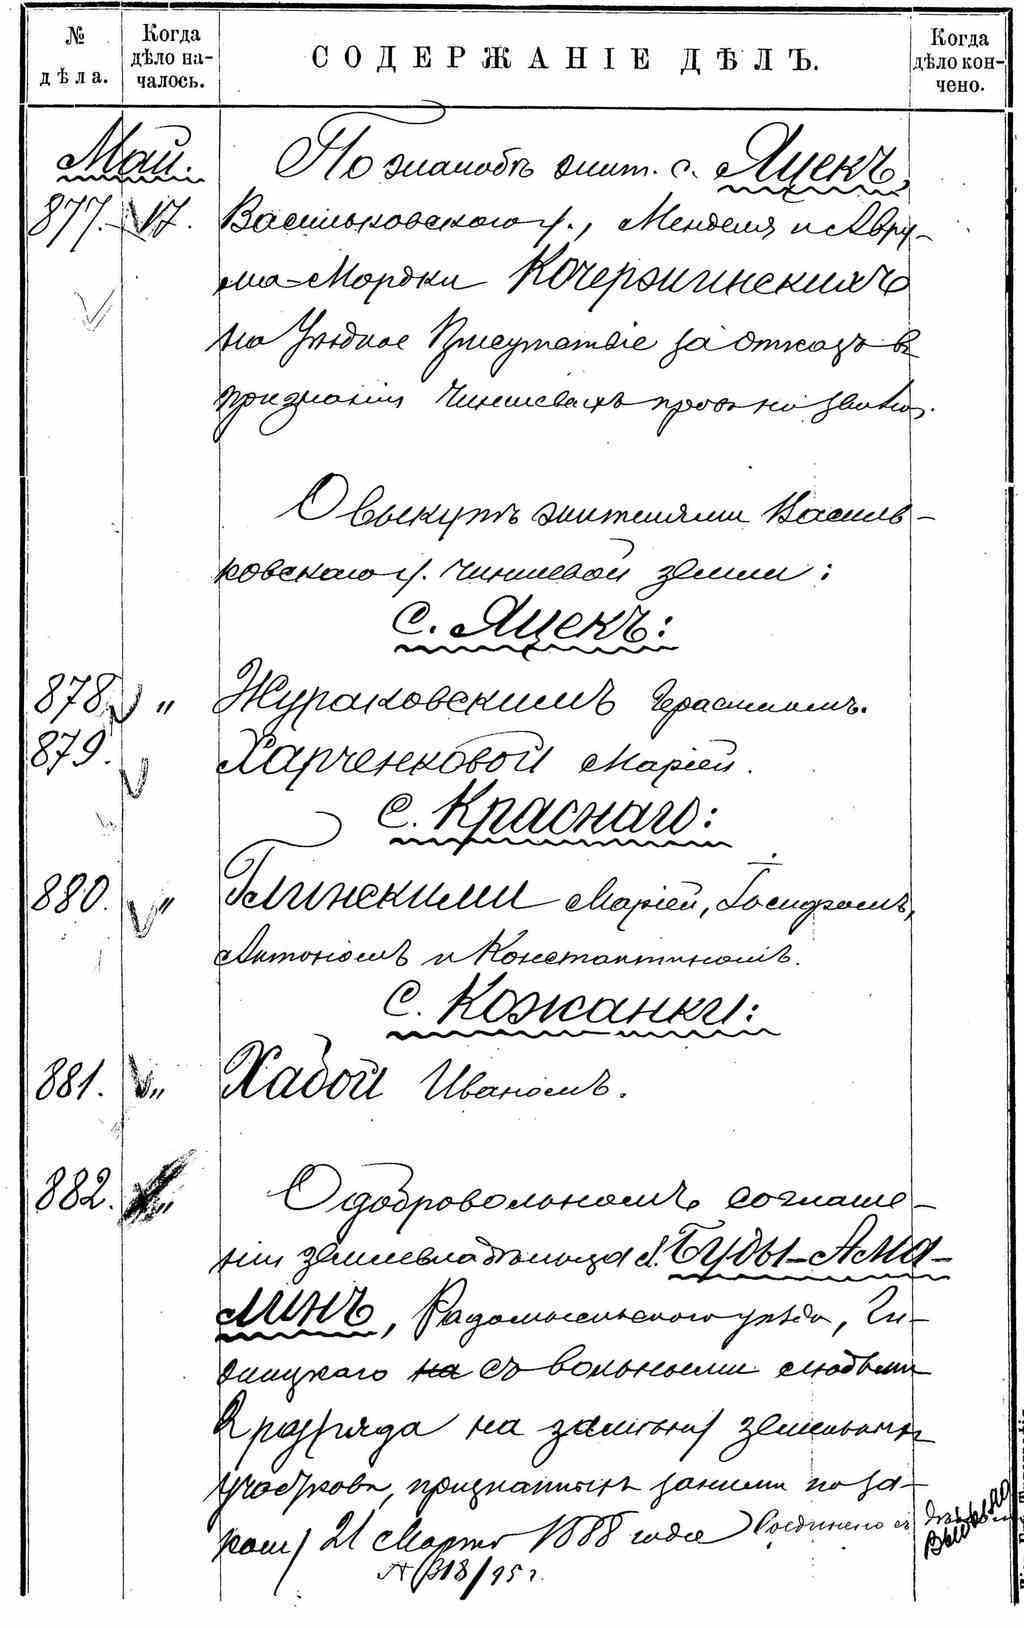 № дѣла.
Когда дѣло началось.
СОДЕРЖАНІЕ ДѢЛЪ.
Когда дѣло кончено.
Май.
По жалобѣ жит. с. Яцекъ,
877. 17. Васильковскаго у., Менделя и Авру-
ма-Мордки Кочержинскихъ
на Уѣздное Присутствіе за отказъ въ
признаніи чиншевыхъ правъ на землю.
О выкупѣ жителями Василь-
ковскаго у. чиншевой земли:
с. Яцекъ:
878. „ Жураковскимъ Герасимомъ.
879. Харченковой Маріей.
с. Краснаго:
880. „ Глинскими Маріей, Іосифомъ,
Антономъ и Константиномъ.
с. Кожанки:
881. „ Хабой Иваномъ.
882. „ О добровольномъ соглаше-
ніи землевладѣльца с. Буды-Ама-
линъ, Радомысльскаго уѣзда,
на съ вольными людьми
2 разряда на замѣну земельныхъ
участковъ, признанныхъ за ними по за-
кону 21 Марта 1888 года Соединено съ
318/95 г.